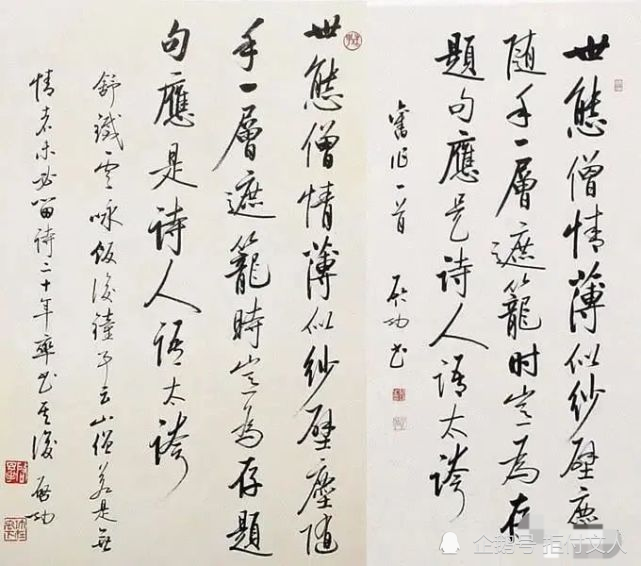 世態僧情薄似紗壁塵
隨手一層遮籠时豈為存
題句應是詩人語太誇
舊作一首 啟功書
世態僧情薄似紗壁塵隨
手一層遮籠時豈為存題
句應是詩人語太誇
舒鐵雲咏飯後鐘云山僧若是無
情者未必留詩二十年率書其後 啟功
企鹅号